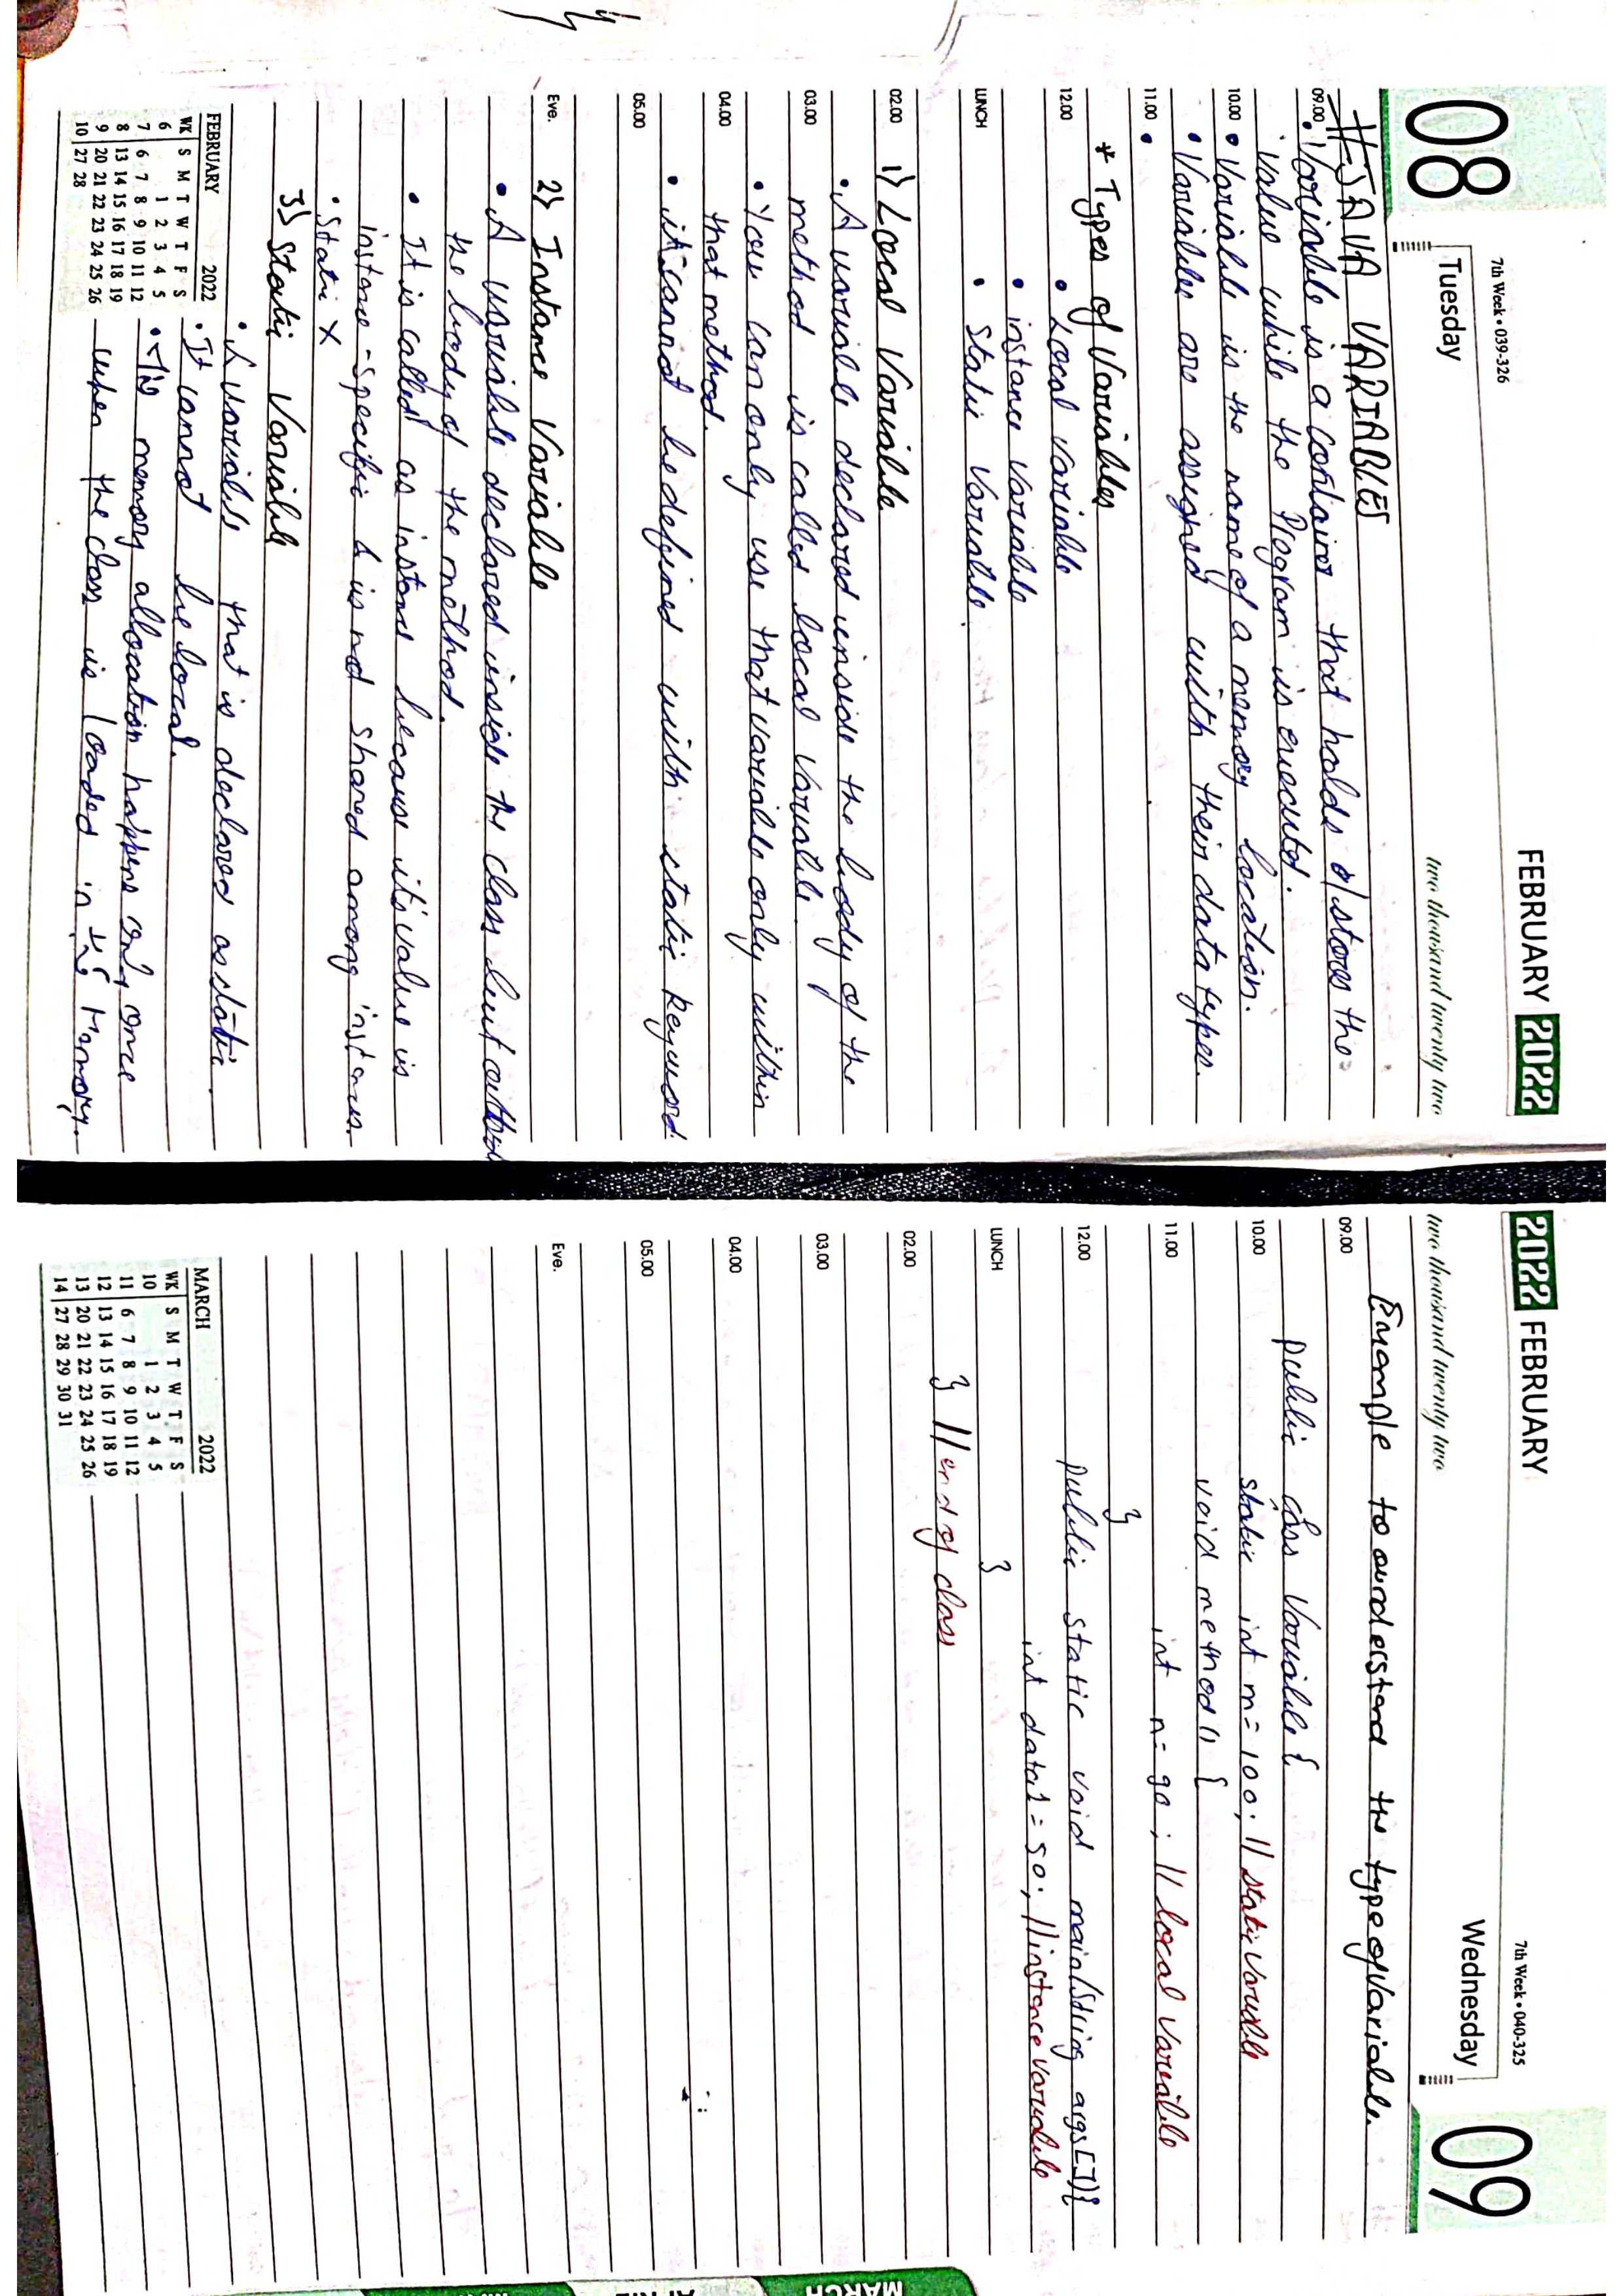 08
7th Week • 039-326
FEBRUARY 2022
Tuesday
two thousand twenty two
#JAVA VARIABLES
09.00 • Variable is a container that holds o/stores the
value while the Program is executed.
10.00 • Variable is the name of a memory location.
• Variables are assigned with their data types.
11.00 •
* Types of Variables
12.00 • Local variable
• instance Variable
LUNCH • Static Variable.
02.00 1) Local Variable
• A variable declared inside the body of the
03.00 method is called local Variable.
• You can only use that variable only within
04.00 that method.
• it cannot be defined with static keyword.
05.00
Eve. 2) Instance Variable
• A variable declared inside the class but
the body of the method.
• It is called as instance because it's value is
instance-specific & is not shared among instances.
• Static X
3) Static Variable
• A variable that is declared as static.
• It cannot be local.
• memory allocation happens only once
when the class is loaded in the Memory.
FEBRUARY 2022
WK S M T W T F S
6 1 2 3 4 5
7 6 7 8 9 10 11 12
8 13 14 15 16 17 18 19
9 20 21 22 23 24 25 26
10 27 28
2022 FEBRUARY
7th Week • 040-325
09
Wednesday
two thousand twenty two
Example to understand the type of Variable.
09.00
public class Variable {
10.00 static int m = 100; // static variable
void method() {
11.00 int n = 90; // local variable
}
12.00 public static void main(String args[]){
int data1 = 50; //instance variable
LUNCH }
} // end of class
02.00
03.00
04.00
05.00
Eve.
MARCH 2022
WK S M T W T F S
10 1 2 3 4 5
11 6 7 8 9 10 11 12
12 13 14 15 16 17 18 19
13 20 21 22 23 24 25 26
14 27 28 29 30 31
MARCH